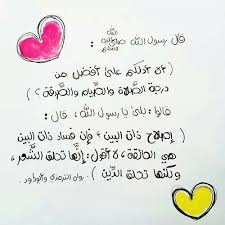 قال رسول الله صلى الله عليه وسلم :
(( ألا أدلكم على أفضل من
درجة الصلاة والصيام والصدقة ؟ )
قالوا : بلى يا رسول الله ، قال :
( إصلاح ذات البين ، فإن فساد ذات البين
هي الحالقة ، لا أقول : إنها تحلق الشعر ،
ولكنها تحلق الدين ) . رواه الترمذي وأبو داود .